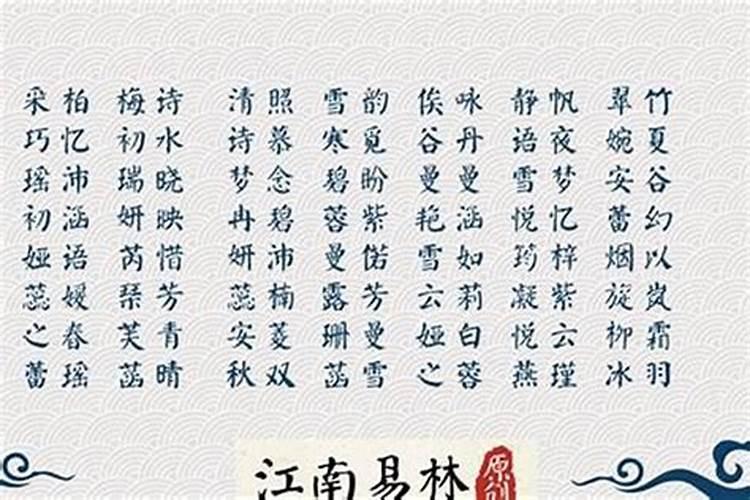 采柏 梅诗 清照 雪韵 俟咏 静帆 翠竹
巧忆 初水 诗慕 寒觅 谷丹 语夜 婉夏
瑶沛 瑞晓 梦念 碧盼 曼曼 雪梦 安谷
初涵 妍映 冉碧 蓉紫 艳涵 悦忆 蕾幻
娅语 芮惜 妍沛 曼偌 雪如 筠梓 烟以
蕊嫒 琴芳 蕊楠 露芳 云莉 凝紫 旋岚
之春 芙青 安菱 珊曼 娅白 悦云 柳霜
蕾瑶 菡晴 秋双 菡雪 之蓉 燕瑾 冰羽
江南易林 原创